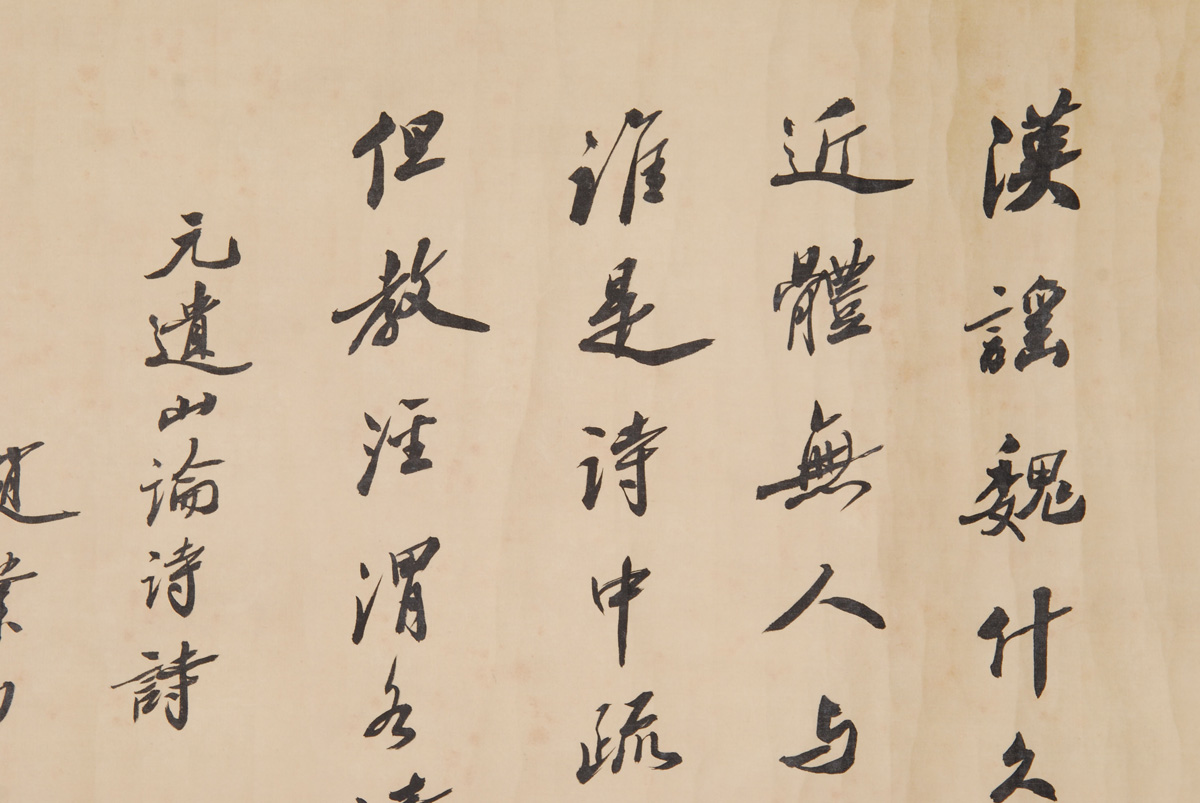 漢謠魏什久
近體無人与
誰是詩中疏
但教涇渭各
元遺山論詩詩